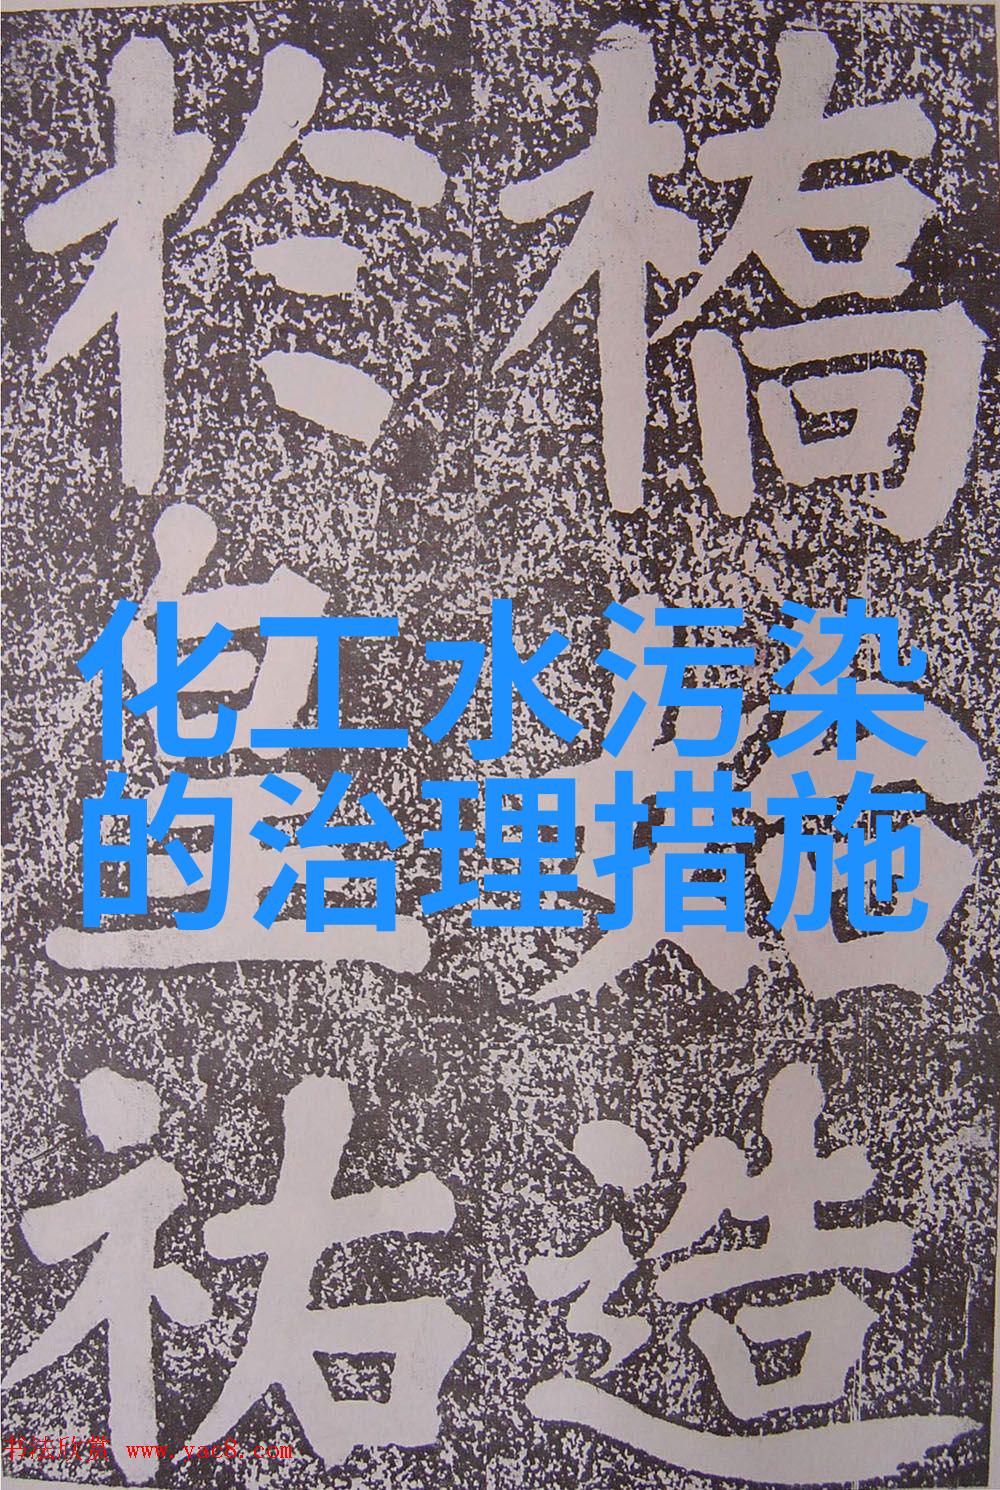 橋始造
於皇祐
化工水污染
的治理措施
书法欣赏 www.yac8.com